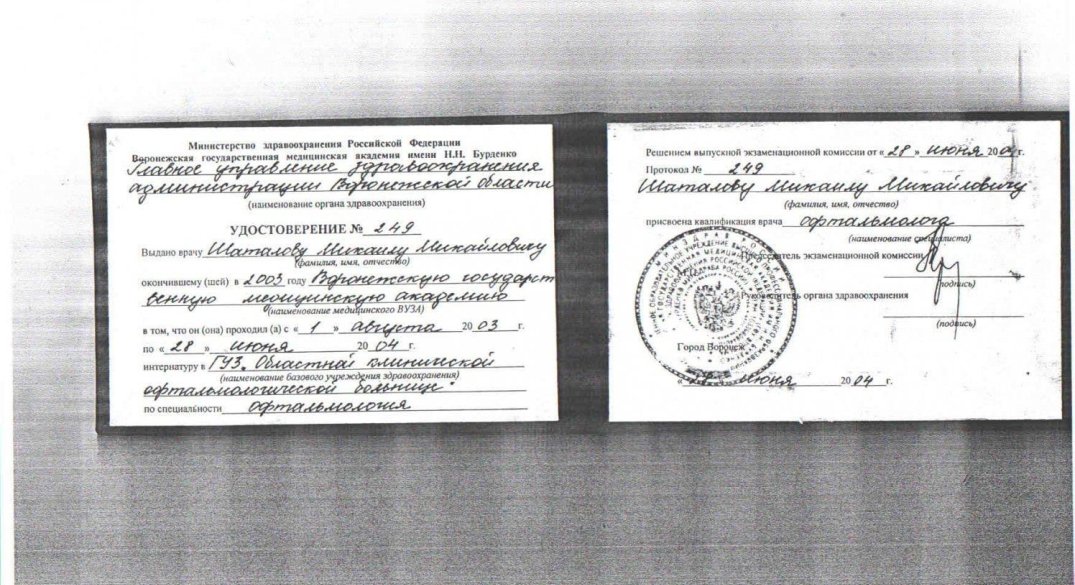 Министерство здравоохранения Российской Федерации
Воронежская государственная медицинская академия имени Н.Н. Бурденко
Главное управление здравоохранения
администрации Воронежской области
(наименование органа здравоохранения)
УДОСТОВЕРЕНИЕ № 249
Выдано врачу Шаталову Михаилу Михайловичу
(фамилия, имя, отчество)
окончившему (шей) в 2003 году Воронежскую государст
венную медицинскую академию
(наименование медицинского ВУЗА)
в том, что он (она) проходил (а) с « 1 » августа 20 03 г.
по « 28 » июня 20 04 г.
интернатуру в ГУЗ. Областной клинической
(наименование базового учреждения здравоохранения)
офтальмологической больнице"
по специальности офтальмология
Решением выпускной экзаменационной комиссии от « 28 » июня 20 04 г.
Протокол № 249
Шаталову Михаилу Михайловичу
(фамилия, имя, отчество)
присвоена квалификация врача офтальмолога
(наименование специалиста)
Председатель экзаменационной комиссии
(подпись)
Руководитель органа здравоохранения
(подпись)
Город Воронеж
июня 20 04 г.